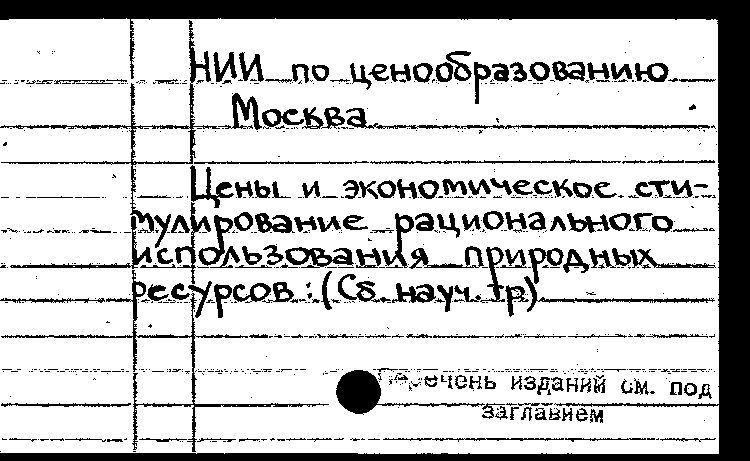 НИИ по ценообразованию
Москва
Цены и экономическое сти-
мулирование рационального
использования природных
ресурсов: (Сб. науч. тр)
Перечень изданий см. под
заглавием